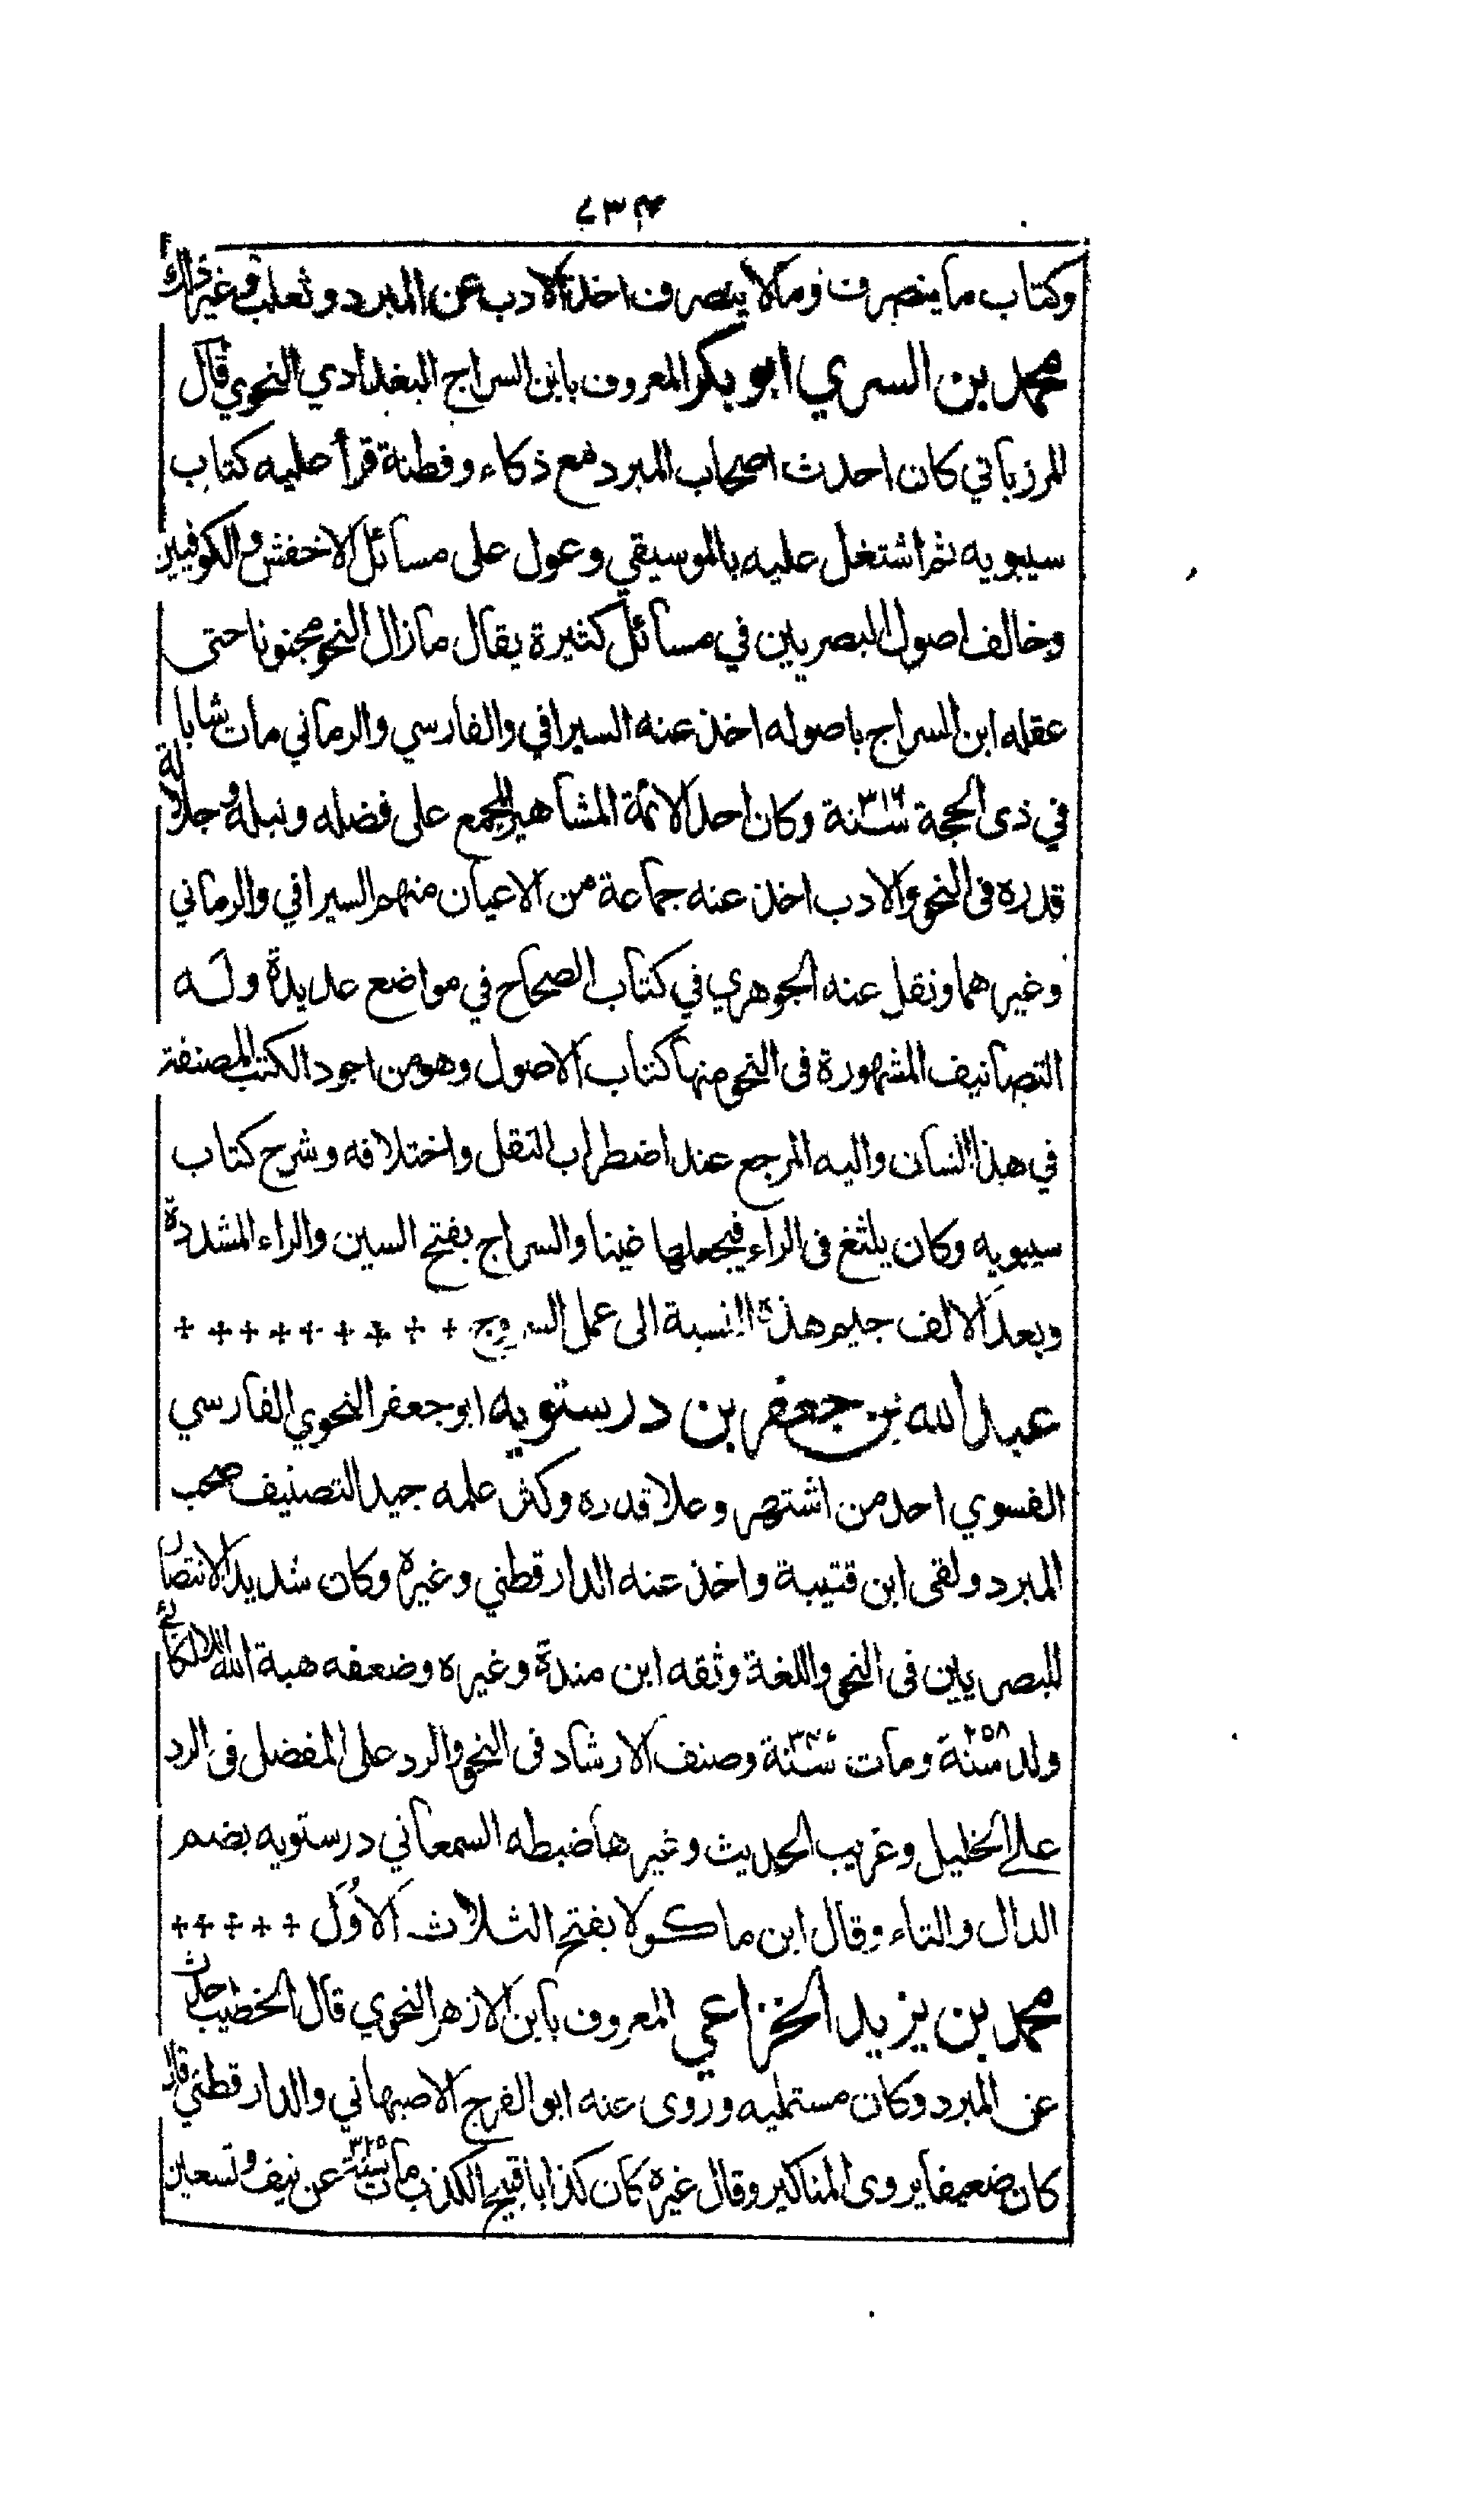 ٧٣٤
وكتاب ما ينصرف وما لا ينصرف اخذ الادب عن المبرد وثعلب وغير ذلك
محمد بن السري ابو بكر المعروف بابن السراج البغدادي النحوي قال
المرزباني كان احدث اصحاب المبرد مع ذكاء وفطنة قرأ عليه كتاب
سيبويه ثم اشتغل عليه بالموسيقي وعول على مسائل الاخفش والكوفيين
وخالف اصول البصريين في مسائل كثيرة يقال ما زال النحو مجنونا حتى
عقله ابن السراج باصوله اخذ عنه السيرافي والفارسي والرماني مات شابا
في ذى الحجة سنة ٣١٦ وكان احد الائمة المشاهير المجمع على فضله ونبله وجلالة
قدره فى النحو والادب اخذ عنه جماعة من الاعيان منهم السيرافي والرماني
وغيرهما ونقل عنه الجوهري في كتاب الصحاح في مواضع عديدة وله
التصانيف المشهورة فى النحو منها كتاب الاصول وهو من اجود الكتب المصنفة
في هذا الشان واليه المرجع عند اضطراب النقل واختلافه وشرح كتاب
سيبويه وكان يلثغ فى الراء فيجعلها غينا والسراج بفتح السين والراء المشددة
وبعد الالف جيم هذه النسبة الى عمل السروج + + + + + + + + +
عبد الله بن جعفر بن درستويه ابو جعفر النحوي الفارسي
الفسوي احد من اشتهر وعلا قدره وكثر علمه جيد التصنيف صحب
المبرد ولقى ابن قتيبة واخذ عنه الدارقطني وغيره وكان شديد الانتصار
للبصريين فى النحو واللغة وثقه ابن مندة وغيره وضعفه هبة الله اللالكائي
ولد سنة ٢٥٨ ومات سنة وصنف الارشاد فى النحو والرد على المفضل فى الرد
على الخليل وغريب الحديث وغير ها ضبطه السمعاني درستويه بضم
الدال والتاء وقال ابن ماكولا بفتح الثلاث الاُوَل + + + + +
محمد بن يزيد الخزاعي المعروف بابن الازهر النحوي قال الخطيب حدث
عن المبرد وكان مستمليه وروى عنه ابو الفرج الاصبهاني والدارقطني قال
كان ضعيفا يروى المناكير وقال غيره كان كذابا قبيح الكذب مات سنة ٣٢٥ عن نيف وتسعين